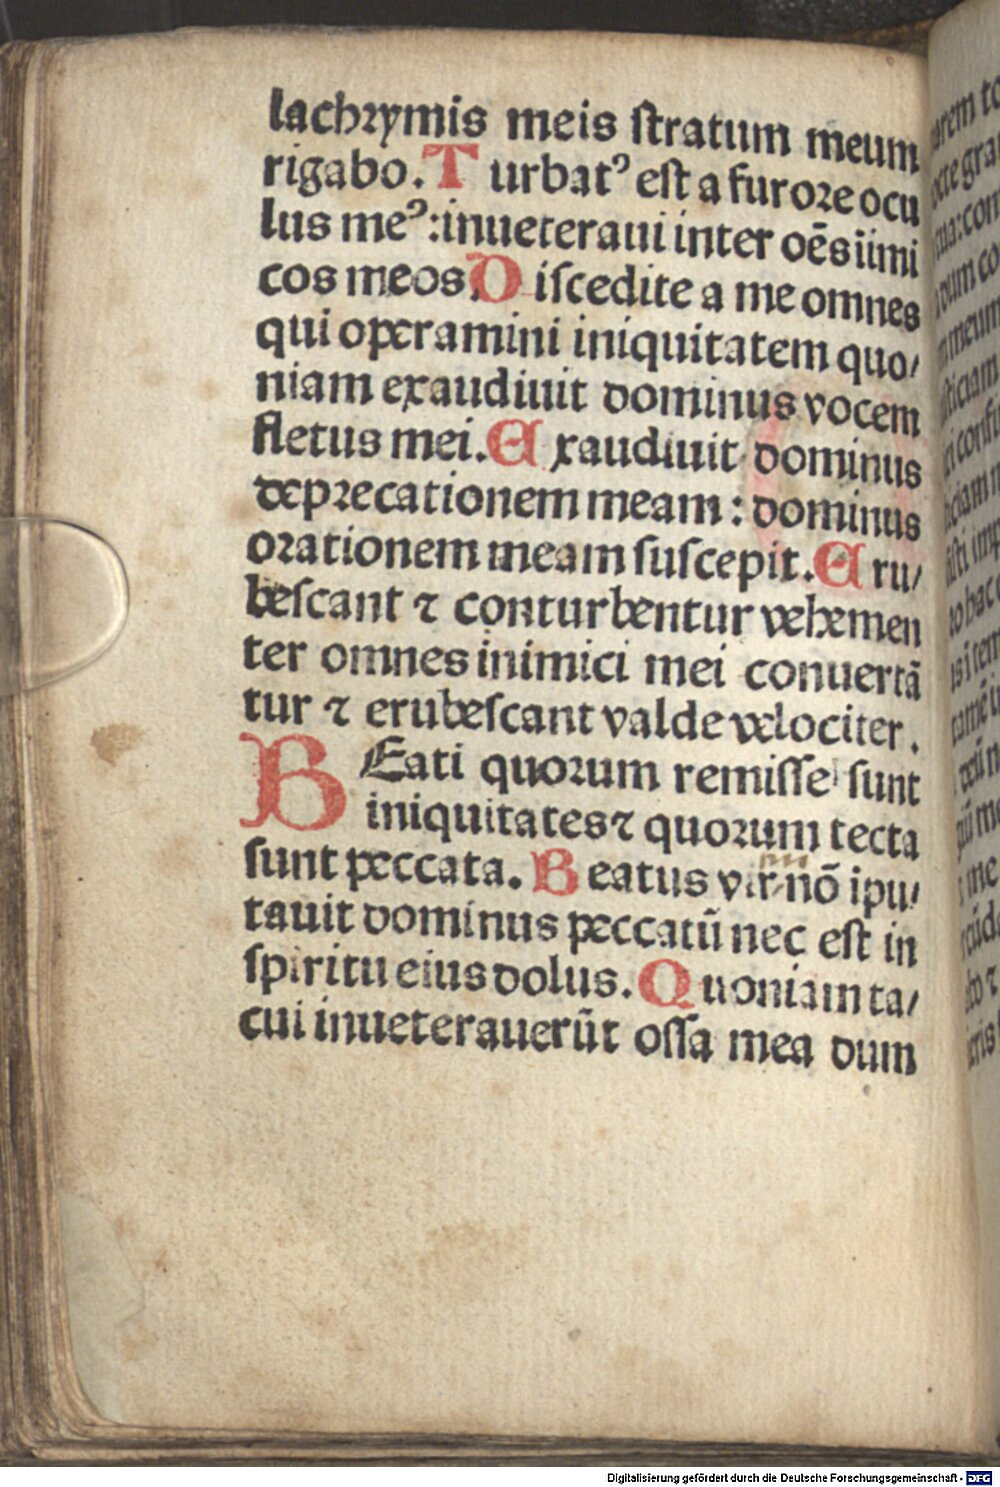 lachrymis meis stratum meum
rigabo. Turbatꝰ est a furore ocu
lus meꝰ: inueteraui inter oēs iimi
cos meos. Discedite a me omnes
qui operamini iniquitatem quo/
niam exaudiuit dominus vocem
fletus mei. Exaudiuit dominus
deprecationem meam: dominus
orationem meam suscepit. Eru/
bescant ⁊ conturbentur vehemen
ter omnes inimici mei conuertā
tur ⁊ erubescant valde velociter.
BEati quorum remisse sunt
iniquitates ⁊ quorum tecta
sunt peccata. Beatus vir nō ipu/
tauit dominus peccatū nec est in
spiritu eius dolus. Quoniam ta/
cui inueterauerūt ossa mea dum
Digitalisierung gefördert durch die Deutsche Forschungsgemeinschaft - DFG